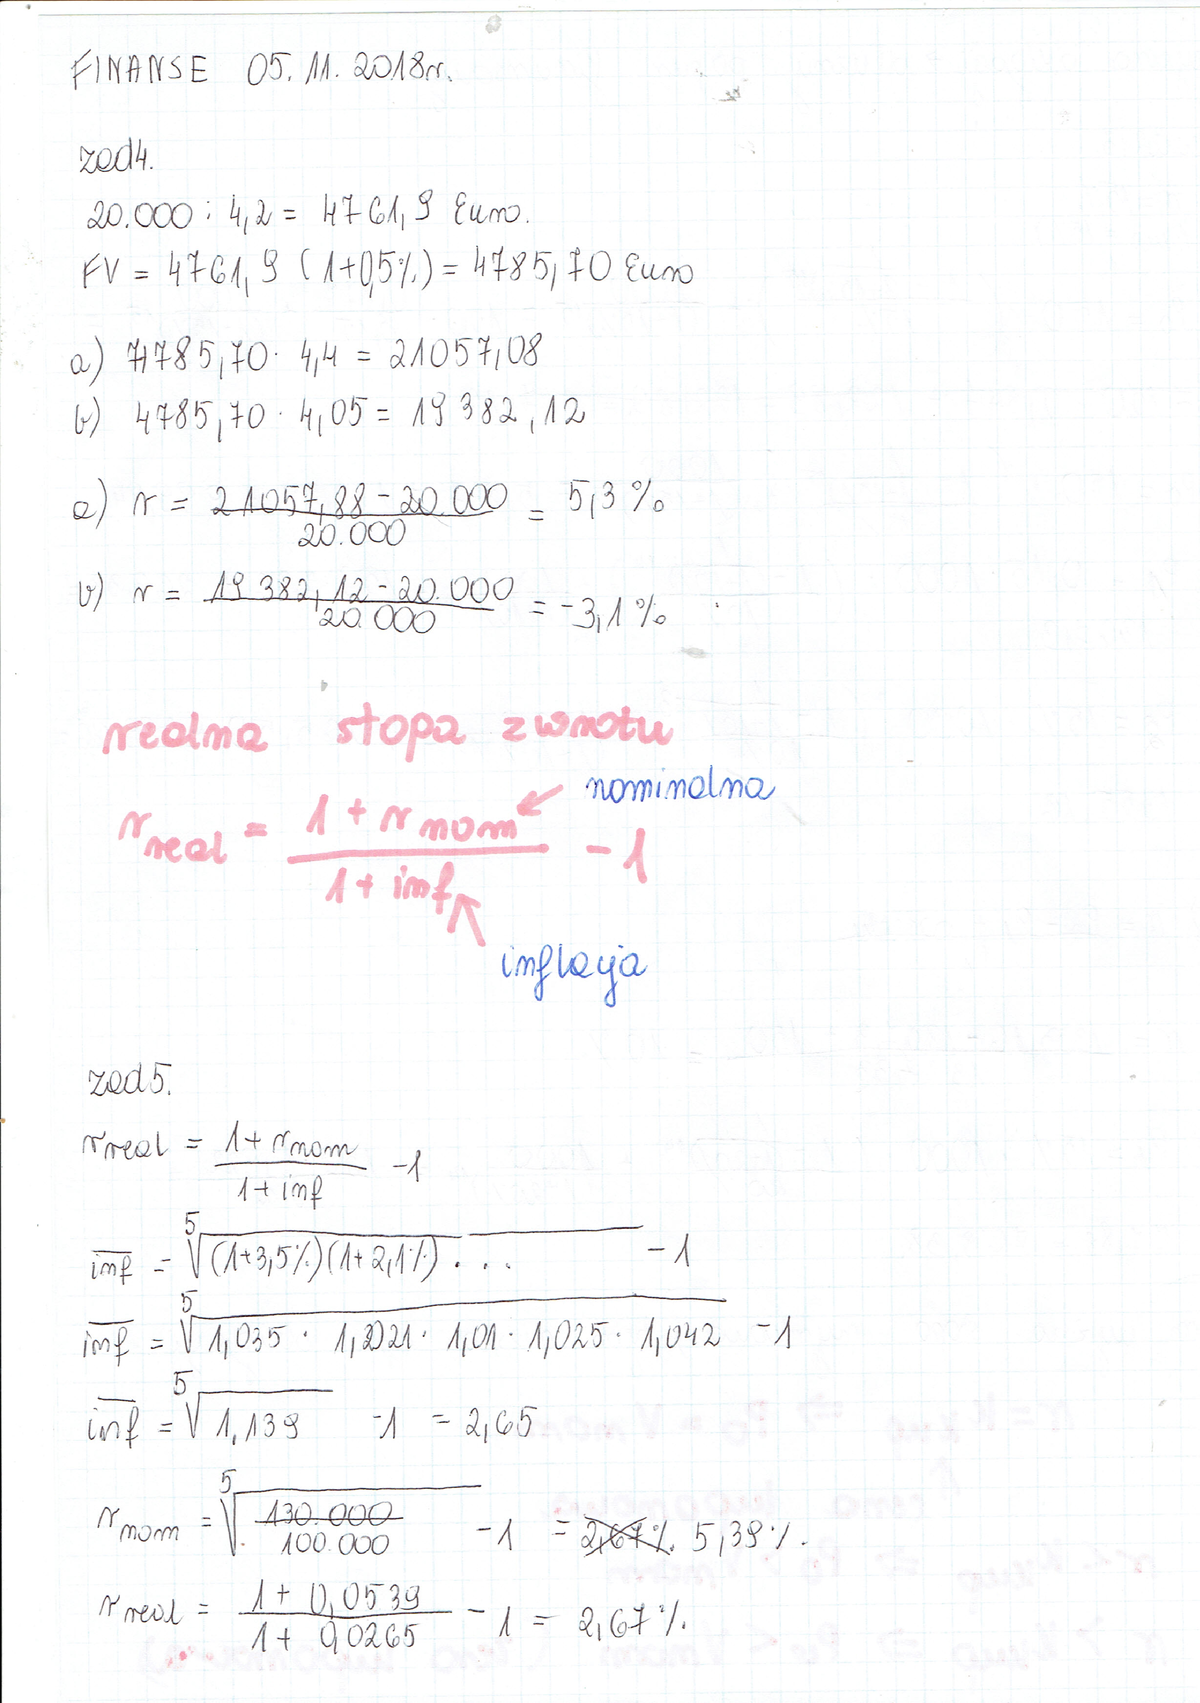 FINANSE 05.11.2018r.
zad4.
20.000 : 4,2 = 4761,9 Euro.
FV = 4761,9 (1+0,5%) = 4785,70 Euro
a) 4785,70 · 4,4 = 21057,08
b) 4785,70 · 4,05 = 19382,12
a) r = 21057,88 - 20.000 / 20.000 = 5,3%
b) r = 19382,12 - 20.000 / 20.000 = -3,1%
realna stopa zwrotu
nominalna
r real = 1 + r nom / 1 + inf - 1
inflacja
zad5.
r real = 1 + r nom / 1 + inf - 1
inf = ⁵√(1+3,5%)(1+2,1%) . . . - 1
inf = ⁵√1,035 · 1,021 · 1,01 · 1,025 · 1,042 - 1
inf = ⁵√1,139 - 1 = 2,65
r nom = ⁵√130.000 / 100.000 - 1 = 2,67% 5,39%.
r real = 1 + 0,0539 / 1 + 0,0265 - 1 = 2,67%.